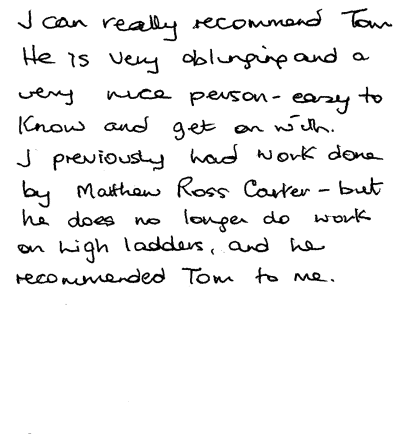 I can really recommend Tom
He is very obliging and a
very nice person - easy to
know and get on with.
I previously had work done
by Matthew Ross Carter - but
he does no longer do work
on high ladders, and he
recommended Tom to me.